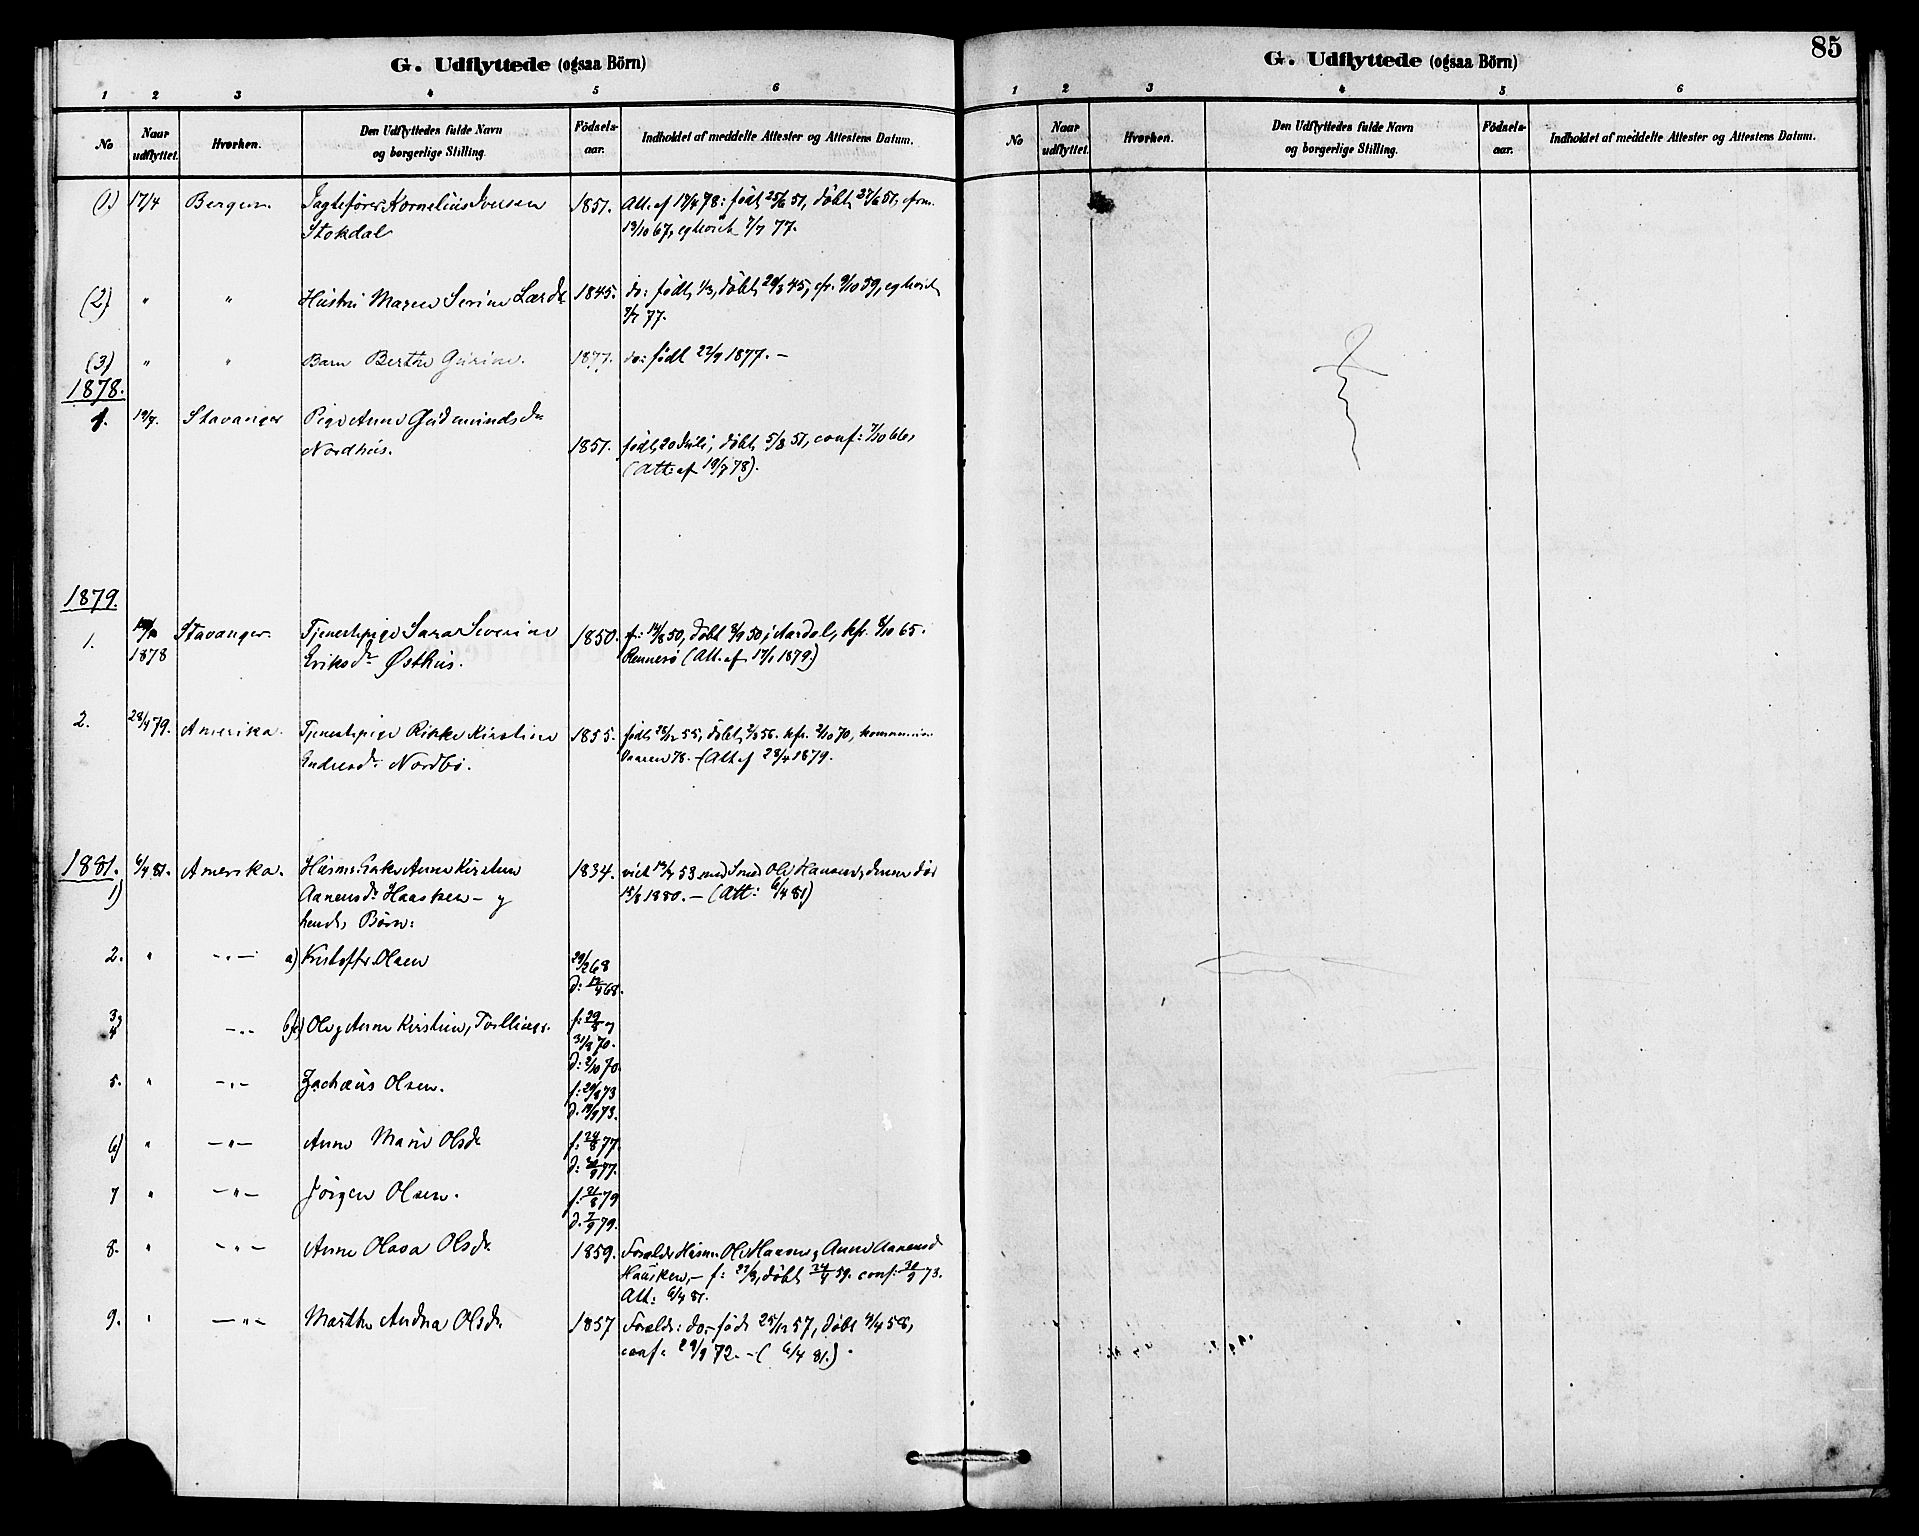 G. Udflyttede (ogsaa Börn)
1 2 3 4 5 6
No Naar udflyttet. Hvorhen. Den Udflyttedes fulde Navn og borgerlige Stilling. Fødsels-aar. Indholdet af meddelte Attester og Attestens Datum.
(1.) 17/4 Bergen. Jagtefører Kornelius Iversen 1851. Att. af 17/4 78: født 25/6 51, døbt 27/6 51, cfrm.
Stokdal 13/10 67, egteviet 7/7 77.
(2) " " Hustru Maren Serine Larsdr 1845. do: født 1/3, døbt 29/3 45, cfr. 9/10 59, egteviet
7/7 77.
(3) " " Barn Berthe Gurine. 1877. do: født 22/9 1877. –
1878.
1. 19/7. Stavanger Pige Anne Gudmunds dr
Nordhus. 1851. født 20 Juli, døbt 5/8 51, conf: 7/10 66,
(Att. af 19/7 78).
1879.
1. 1878 Stavanger. Tjenestepige Sara Severine 1850. f: 14/8 50, døbt 8/9 50 i Aardal, kfr. 8/10 65.
Eriksdr Østhus. Rennesø (Att. af 17/1 1879.)
2. 28/4 79. Amerika. Tjenestepige Rikke Kirstine 1855. født 25/12 55, døbt 2/3 56. kfr. 2/10 70, kommunion
Endresdr Nordbø. Vaaren 78. – (Att af 28/4 1879.
1881. 6/4 81. Amerika. Husm: Enke Anne Kirstine 1834. viet 13/7 53 med Ole Hansen, denne død
1) Aanensdr Hausken – og 15/8 1880. – (Att: 6/4 81)
hendes Børn:
2. " – " – a) Kristoffer Olsen 29/2 68
d: 12/4 68.
3 og 4 – " – b og c) Ole og Anne Kirstine, Tvillinger. f: 29/8 og
31/8 70.
d: 2/10 70.
5. " – " – Zachæus Olsen. f: 29/8 73
d. 14/9 73.
6) " – " – Anne Marie Olsdr f: 24/8 77.
d: 30/9 77.
7 " – " – Jörgen Olsen. f: 21/8 79
d. 7/9 79.
8. " – " – Anne Olava Olsdr 1859. Foræld: Husm. Ole Hansen og Anne Aanensd
Hausken, – f: 27/3, døbt 24/4 59. conf: 30/9 73.
Att: 6/4 81.
9. " – " – Marthe Andrea Olsdr 1857 Foræld: do. – født 25/12 57, døbt 4/4 58,
conf: 29/9 72. – ( 6/4 81.)
85
G. Udflyttede (ogsaa Börn)
1 2 3 4 5 6
No Naar udflyttet. Hvorhen. Den Udflyttedes fulde Navn og borgerlige Stilling. Fødsels-aar. Indholdet af meddelte Attester og Attestens Datum.